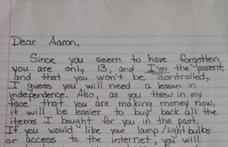 Dear Aaron,
Since you seem to have forgotten
you are only 13, and I'm the parent,
and that you won't be controlled,
I guess you will need a lesson in
independence. Also, as you threw in my
face that you are making money now,
it will be easier to buy back all the
items I bought for you in the past.
If you would like your lamp/lightbulbs
or access to the internet, you will